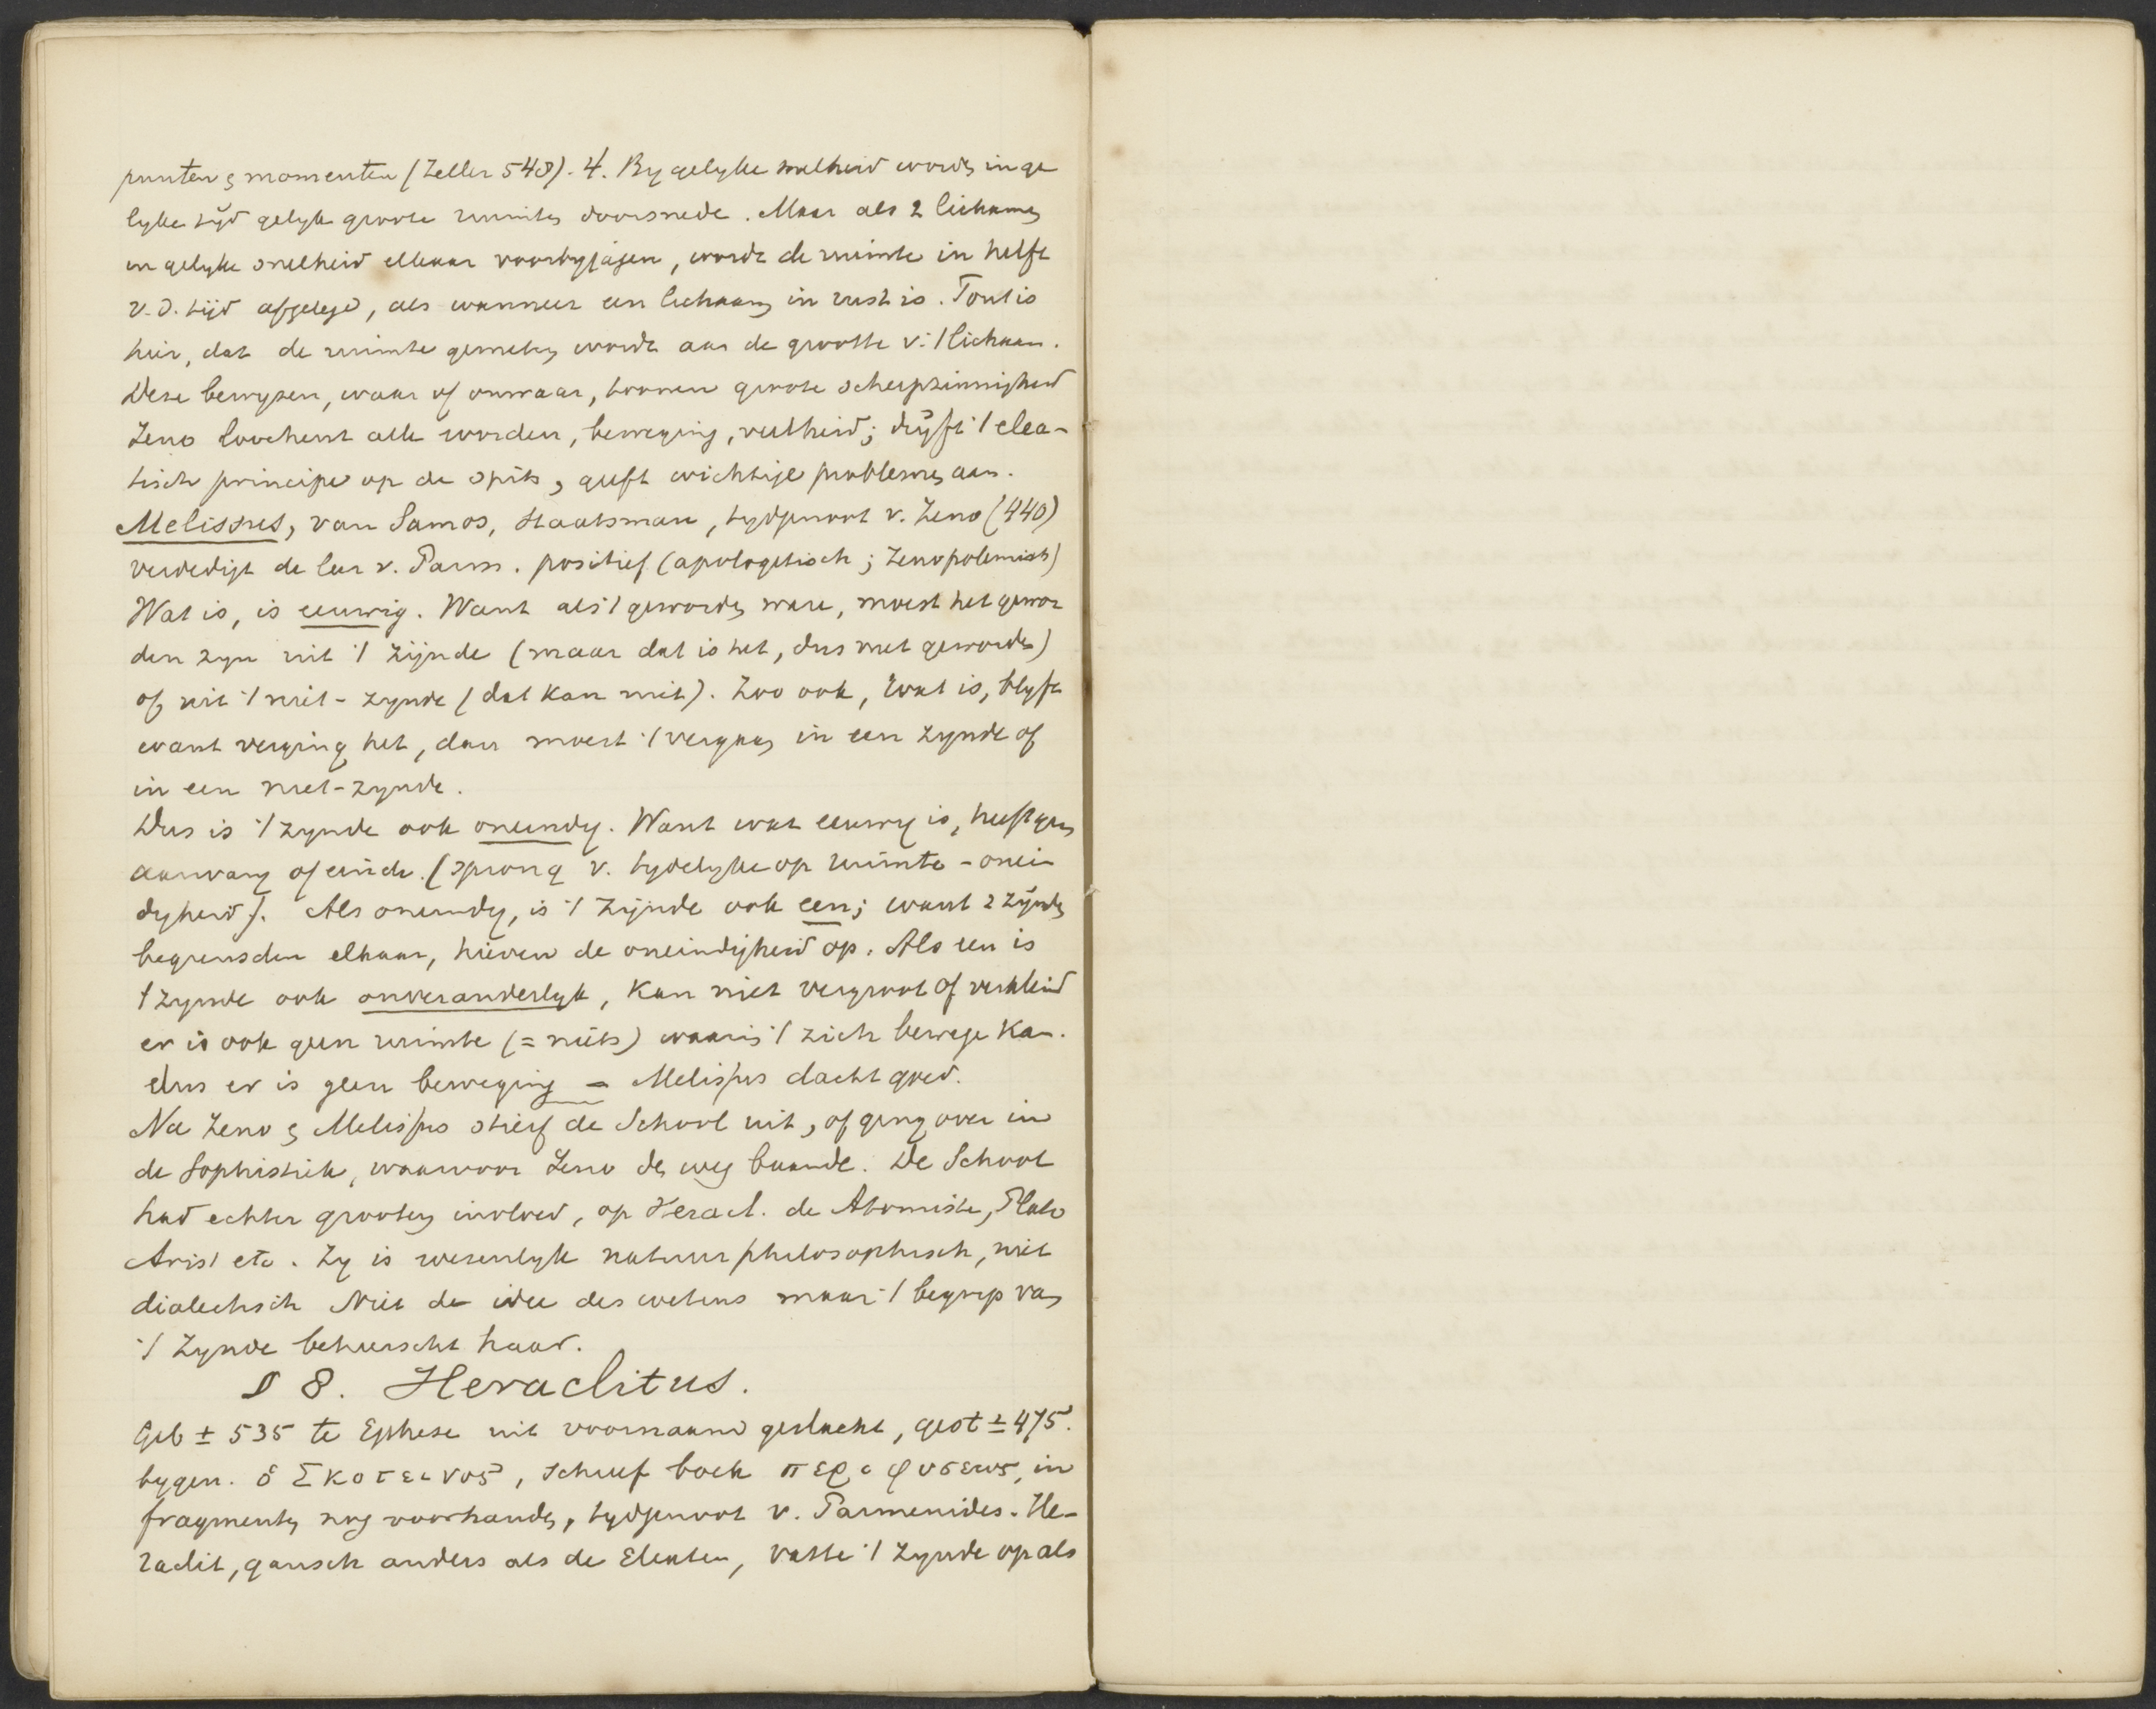 punten & momenten (Zeller 548). 4. By gelyke snelheid worden in ge
lyke tyd gelyk groote ruimten doorsnede. Maar als 2 lichamen
in gelyke snelheid elkaar voorbyjagen, wordt de ruimte in helft
v.d. tijd afgelegd, als wanneer een lichaam in rust is. Fout is
hier, dat de ruimte gemeten wordt aan de grootte v. 't lichaam.
Deze bewyzen, waar of onwaar, toonen groote scherpzinnigheid
Zeno loochent alle worden, beweging, veelheid; dryft 't elea-
tisch principe op de spits, geeft wichtige problemen aan.
Melissus, van Samos, staatsman, tydgenoot v. Zeno (440)
verdedigt de leer v. Parm. positief (apologetisch; Zeno polemisch)
Wat is, is eeuwig. Want als 't geworden ware, moest het gewor
den zyn uit 't zijnde (maar dat is het, dus niet geworden)
of uit 't niet-zynde (dat kan niet). Zoo ook, wat is, blyft
want verging het, dan moest 't vergaan in een zynde of
in een niet-zynde.
Dus is 't zynde ook oneindig. Want wat eeuwig is, heeft geen
aanvang of einde. (sprong v. tydelyke op ruimte-onein
digheid). Als oneindig, is 't zijnde ook een; want 2 zijnden
begrensden elkaar, hieven de oneindigheid op. Als een is
't zynde ook onveranderlyk, kan niet vergroot of verkleind
er is ook geen ruimte (= niets) waarin 't zich bewege kan.
dus er is geen beweging – Melissus dacht goed.
Na Zeno & Melissus stierf de School uit, of ging over in
de Sophistiek, waarvoor Zeno den weg baande. De School
had echter grooten invloed, op Heracl. de Atomiste, Plato
Arist etc. Zy is wezenlyk natuurphilosophisch, niet
dialectisch Niet de idee des wetens maar 't begrip van
't zynde beheerscht haar.
§ 8. Heraclitus.
Geb ± 535 te Ephese uit voornaam geslacht, gest ± 475.
bygen. ὁ Σκοτεινος, schreef boek περι φυσεως, in
fragmenten nog voorhanden, tydgenoot v. Parmenides. He-
raclit, gansch anders als de Eleaten, vatte 't zynde op als